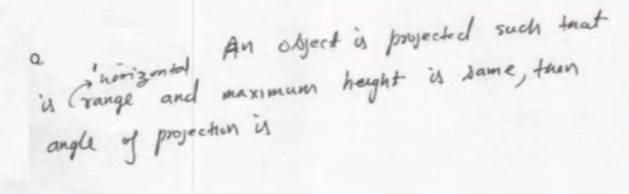 Q An object is projected such that
horizontal
is range and maximum height is same, then
angle of projection is